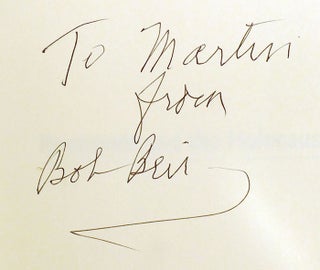 To Martin
from
Bob Beir